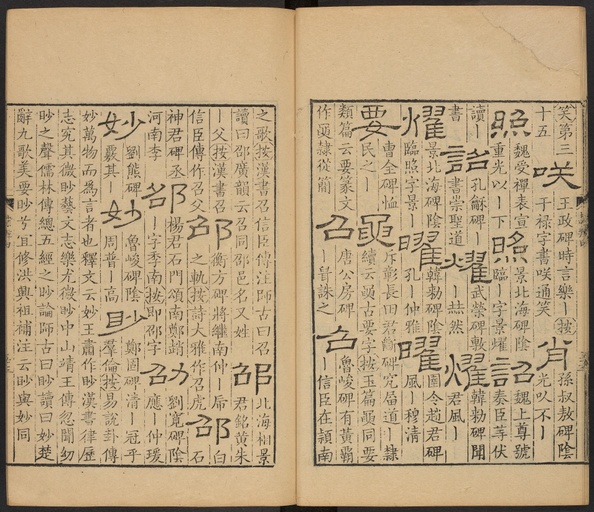 笑第三十五咲王政碑時言樂丨按干祿字書咲通笑肖孫叔敖碑陰光以不丨
照魏受禪表宣重光以丨下照景北海碑陰臨丨字景燿詔魏上尊號奏臣等伏
讀丨書詔孔龢碑丨書崇聖道燿武榮碑斁丨赫然燿韓勑碑聞君風丨
燿景北海碑陰臨照字景丨曜韓勑碑陰孔丨仲雅曜圉令趙君碑風丨穆清
要曹全碑恤民之丨䙅斥彰長田君斷碑究屆道丨隸續云䙅古要字按玉篇䙅同要
類篇云要篆文作䙅隸從簡召唐公房碑丨晉誅之召魯峻碑有黃霸丨信臣在潁南
之歌按漢書召信臣傳注師古曰召讀曰邵廣韻云召同邵邑名又姓邵北海相景君銘黃朱
丨父按漢書召信臣傳作召父邵衡方碑將繼南仲丨虎之軌按詩大雅作召虎邵白石
神君碑丞河南李丨邵楊君石門頌南鄭趙丨字季南按卽邵字劭劉寬碑陰應丨仲瑗
妙劉熊碑覈其丨妙魯峻碑陰周普丨高眇鄭固碑清丨冠乎羣倫按易說卦傳
妙萬物而爲言者也釋文云妙王肅作眇漢書律歷志究其微眇藝文志樂尤微眇中山靖王傳忽聞幼
眇之聲儒林傳總五經之眇論師古曰眇讀曰妙楚辭九歌美要眇兮宜修洪興祖補注云眇與妙同